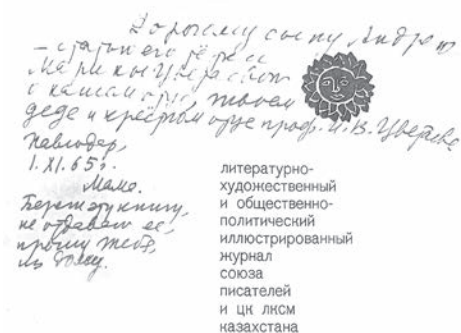 Дорогому сыну Андрею
– статью его тёти
Марины Цветаевой
о нашем отце, твоем
деде и крёстном отце проф. И. В. Цветаеве
Павлодар,
1.XI.65г.
Мама.
Береги эту книгу,
не отдавай её,
прошу тебя,
из дому.
литературно-
художественный
и общественно-
политический
иллюстрированный
журнал
союза
писателей
и цк лксм
казахстана